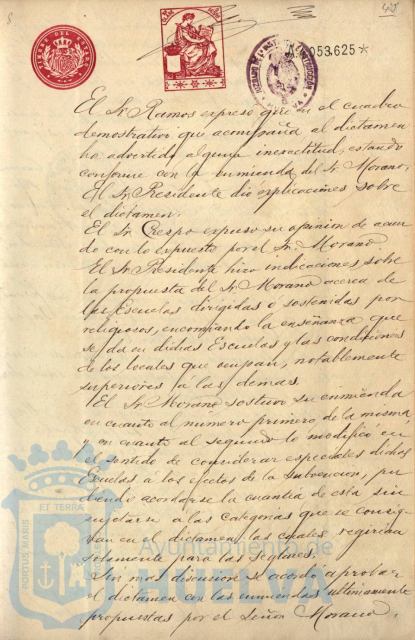 053.625
El Sr. Ramos expresó que en el cuadro
demostrativo que acompaña al dictamen
ha advertido alguna inexactitud, estando
conforme con la enmienda del Sr. Morano.
El Sr. Presidente dió explicaciones sobre
el dictámen.
El Sr. Crespo expuso su opinión de acuer
do con lo expuesto por el Sr. Morano
El Sr. Presidente hizo indicaciones sobre
la propuesta del Sr. Morano acerca de
las Escuelas dirigidas ó sostenidas por
religiosos, encomiando la enseñanza que
se da en dichas Escuelas y las condiciones
de los locales que ocupan, notablemente
superiores a las demas.
El Sr. Morano sostuvo su enmienda
en cuanto al número primero de la misma
y en cuanto al segundo lo modificó en
el sentido de considerar especiales dichas
Escuelas, á los efectos de la subvencion, pu
diendo acordarse la cuantía de esta sin
sujetarse a las categorias que se consig
nan en el dictamen, las cuales regirian
solamente para las seglares.
Sin mas discusion se acordó aprobar
el dictamen con las enmiendas ultimamente
propuestas por el Señor Morano.
PORTUS MARIS
ET TERRÆ
Ayuntamiento de